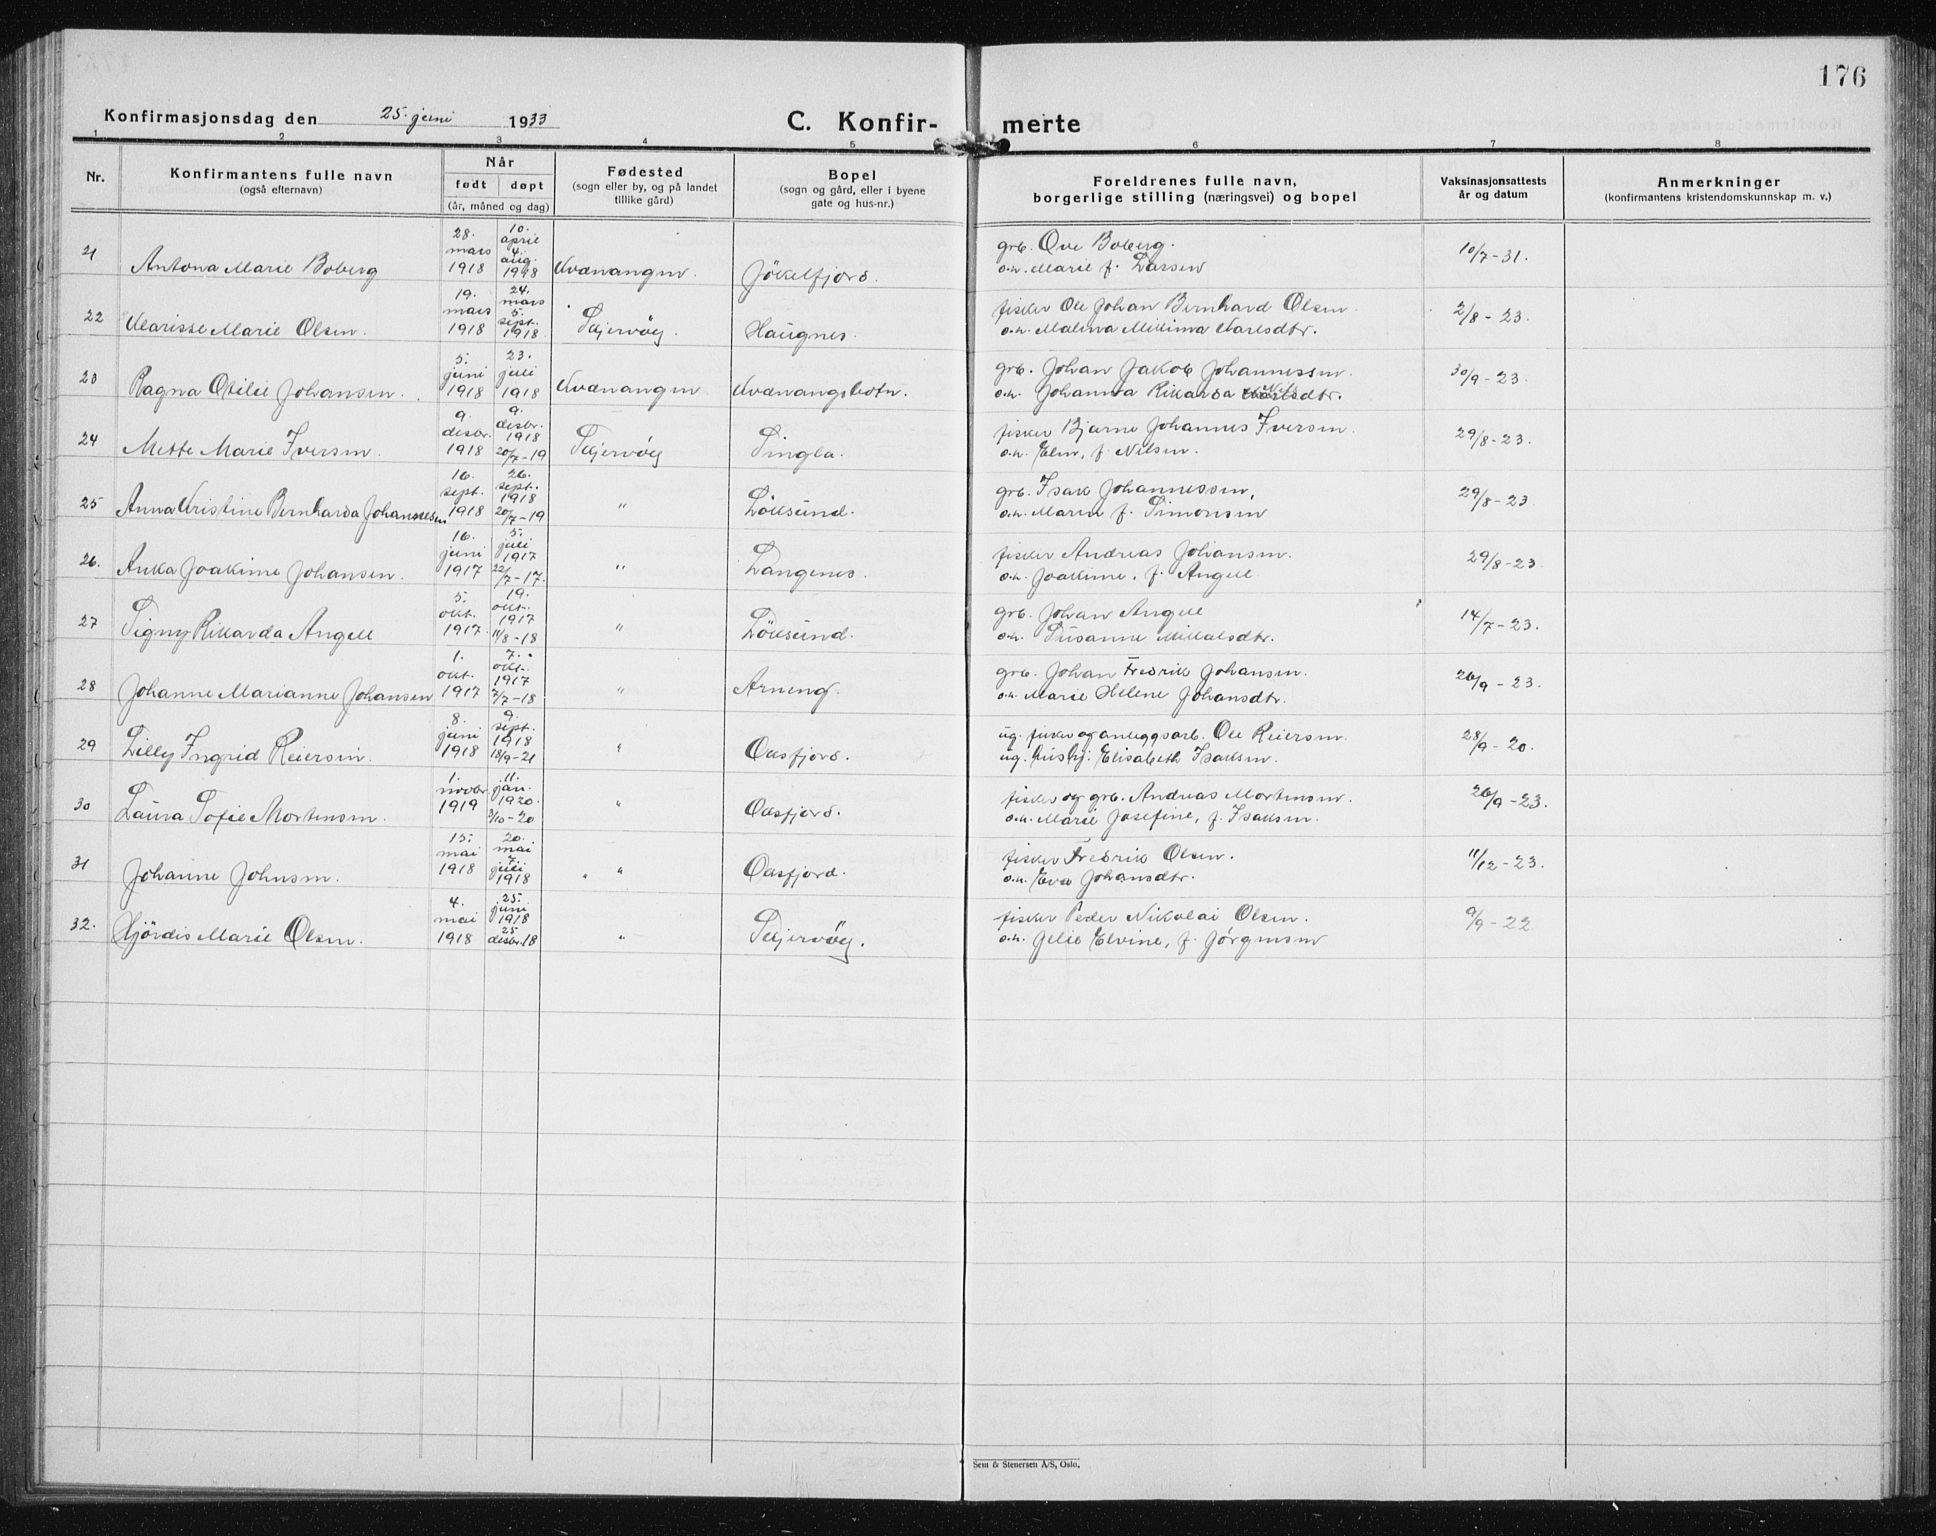 176
Konfirmasjonsdag den 25. juni 1933
C. Konfir- merte
1 2 3 4 5 6 7 8
Nr.
Konfirmantens fulle navn
(også efternavn)
Når
født døpt
(år, måned og dag)
Fødested
(sogn eller by, og på landet
tillike gård)
Bopel
(sogn og gård, eller i byene
gate og hus-nr.)
Foreldrenes fulle navn,
borgerlige stilling (næringsvei) og bopel
Vaksinasjonsattests
år og datum
Anmerkninger
(konfirmantens kristendomskunnskap m. v.)
21 Antona Marie Boberg 28. mars 1918 10. april 4. aug. 1918 Kvænangen Jökelfjord. grb. Ove Boberg. o.h. Marie f. Larsen 10/7-31.
22 Klarisse Marie Olsen. 19. mars 1918 24. mars 5. sept. 1918. Skjervøy. Haugnes. fisker Ole Johan Bernhard Olsen o.h. Malena Mikkima Karlsdtr. 2/8-23.
23 Ragna Otilie Johansen. 5. juni 1918 23. juli 1918 Kvænangen Kvænangsbotn. grb. Johan Jakob Johannessen. o.h. Johanna Rikarda dtr. 30/9-23.
24 Mette Marie Iversen. 9. desbr. 1918 9. desbr. 1918 20/7-19 Skjervøy Singla. fisker Bjarne Johannes Iversen. o.h. Elen, f. Nilsen. 29/8-23.
25 Anna Kristine Bernharda Johannesen 16. sept. 1918 26. sept. 1918 20/7-19 " Löksund. grb. Isak Johannessen, o.h. Maren f. Simonsen 29/8-23
26. Anka Joakime Johansen. 16. juni 1917 5. juli 1917 22/7-17. " Langenes. fisker Andreas Johansen. o.h. Joakime, f. Angell 29/8-23.
27 Signy Rikkarda Angell 5. okt. 1917. 19. okt. 1917 11/8-18 " Löksund. grb. Johan Angell o.h. Susanne Mikkalsdtr. 14/7-23.
28 Johanne Marianne Johansen 1. okt. 1917 7. okt. 1917 7/7-18 " Arneng. grb. Johan Fredrik Johansen. o.h. Marie Helene Johansdtr. 26/9-23.
29 Lilly Ingrid Reiersen. 8. juni 1918 9. sept. 1918 18/9-21 " Oksfjord. ug. fisker og anleggsarb. Ole Reiersen. ug. hushj: Elisabeth Isaksen. 28/9-20.
30 Laura Sofie Mortensen. 1. novbr. 1919 11. jan. 1920. 3/10-20 " Oksfjord. fisker og grb. Andreas Mortensen. o.h. Marie Josefine, f. Isaksen. 26/9-23.
31 Johanne Johnsen. 15. mai 1918 20. mai 7. juli 1918 " " Oksfjord. fisker Fredrik Olsen. o.h. Eva Johansdtr. 11/12-23.
32. Hjördis Marie Olsen. 4. mai 1918 25. juni 1918 25 desbr. 18 " Skjervøy. fisker Peder Nikolai Olsen. o.h. Jelie Elvine, f. Jørgensen 9/9-22
Sem & Stenersen A/S, Oslo.